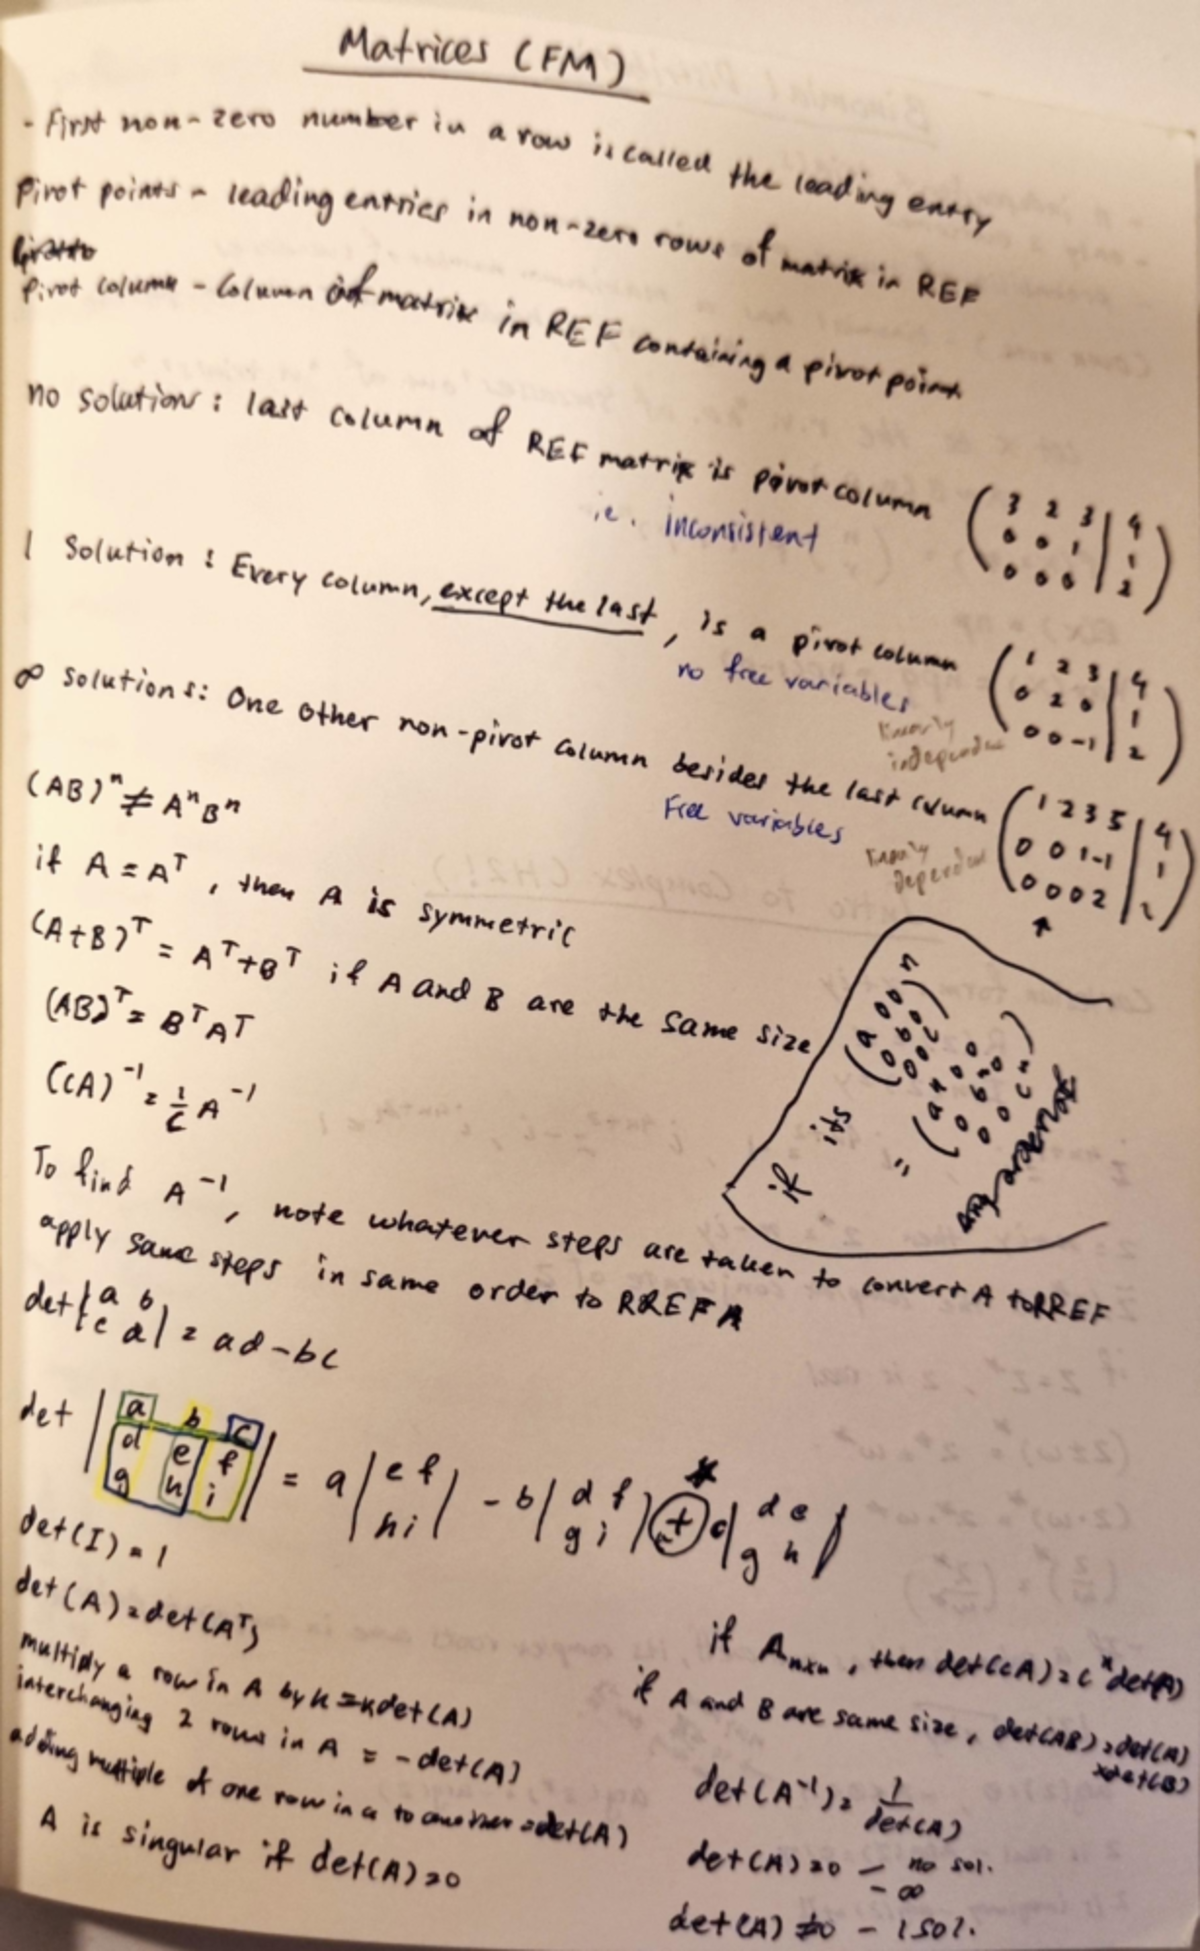 Matrices (FM)
- First non-zero number in a row is called the leading entry
Pivot points - leading entries in non-zero rows of matrix in REF
Pivot column - Column of matrix in REF containing a pivot point
no solution: last column of REF matrix is pivot column
i.e. inconsistent
( 3 2 3 | 4
0 0 1 | 1
0 0 0 | 2 )
1 Solution: Every column, except the last, is a pivot column
no free variables
linearly independent
( 1 2 3 | 4
0 2 0 | 1
0 0 -1 | 2 )
∞ solutions: One other non-pivot column besides the last column
Free variables
linearly dependent
( 1 2 3 5 | 4
0 0 1 -1 | 1
0 0 0 2 | 2 )
↑
(AB)ⁿ ≠ AⁿBⁿ
if A = Aᵀ, then A is symmetric
(A+B)ᵀ = Aᵀ+Bᵀ if A and B are the same size
(AB)ᵀ = BᵀAᵀ
(cA)⁻¹ = 1/c A⁻¹
if its
( a 0 0
0 b 0
0 0 c )ⁿ
= ( aⁿ 0 0
0 bⁿ 0
0 0 cⁿ )
any order
To find A⁻¹, note whatever steps are taken to convert A to RREF
apply same steps in same order to RREF A
det | a b
c d | = ad - bc
det | a b c
d e f
g h i | = a | e f
h i | - b | d f
g i | + c | d e
g h |
det(I) = 1
det(A) = det(Aᵀ)
multiply a row in A by k = kdet(A)
interchanging 2 rows in A = -det(A)
adding multiple of one row in a to another = det(A)
A is singular if det(A) = 0
if Aₙₓₙ, then det(cA) = cⁿ det(A)
if A and B are same size, det(AB) = det(A)
× det(B)
det(A⁻¹) = 1/det(A)
det(A) = 0 - no sol.
- ∞
det(A) ≠ 0 - 1 sol.